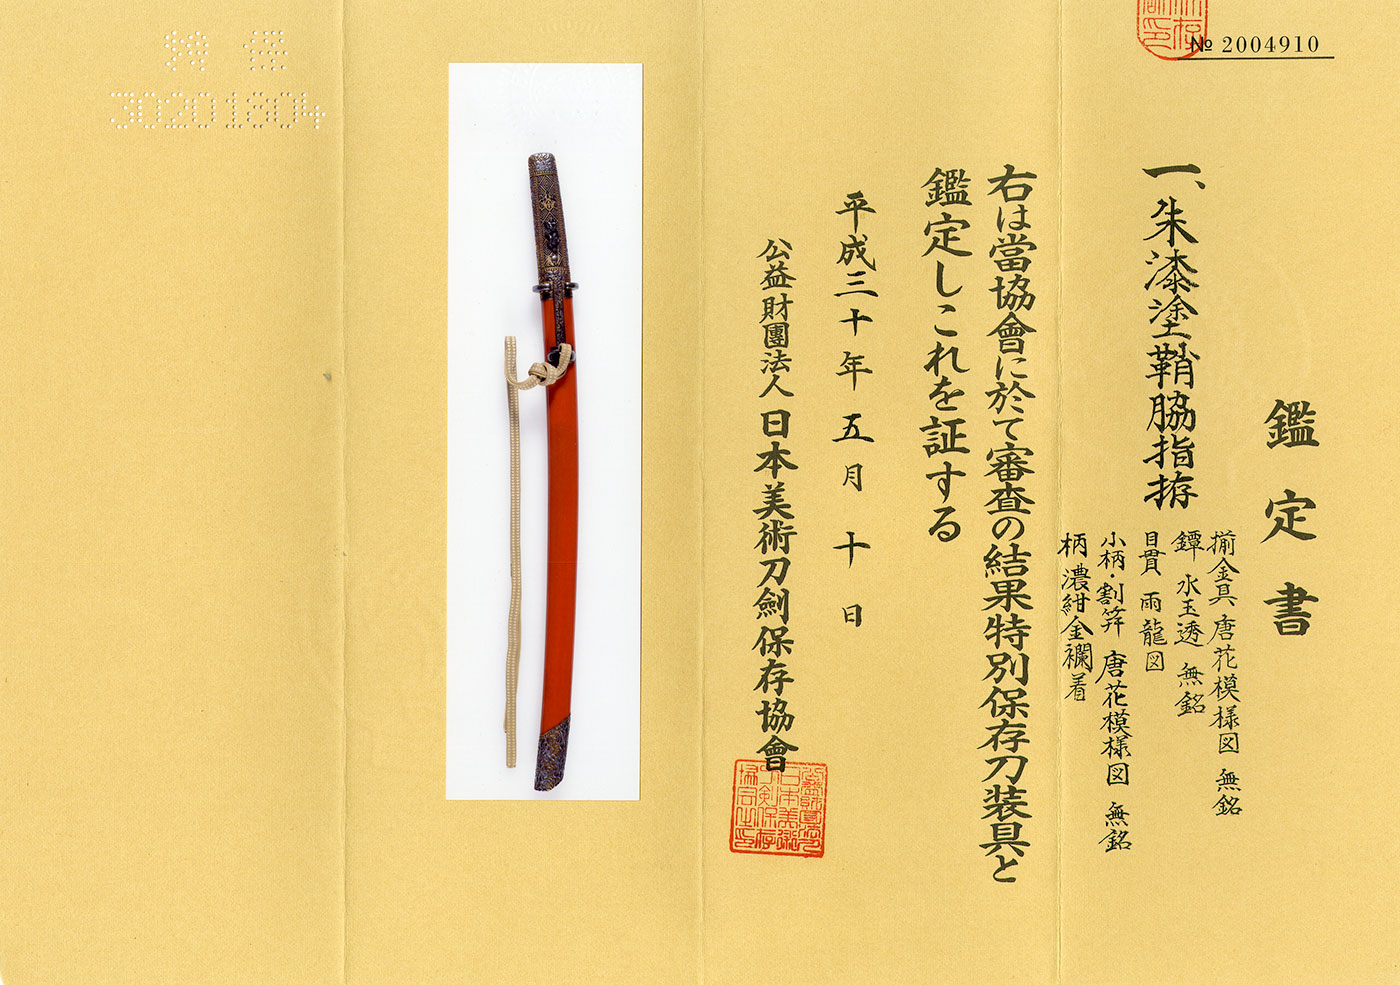 № 2004910
鑑定書
一、朱漆塗鞘脇指拵
揃金具 唐花模様図 無銘
鐔 水玉透 無銘
目貫 雨龍図
小柄・割笄 唐花模様図 無銘
柄 濃紺金襴着
右は當協會に於て審査の結果特別保存刀装具と
鑑定しこれを証する
平成三十年五月十日
公益財團法人 日本美術刀劍保存協會
30201804